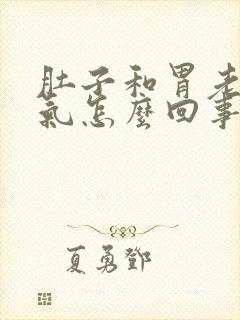 肚子和胃老
氣怎麼回事
夏勇鄧